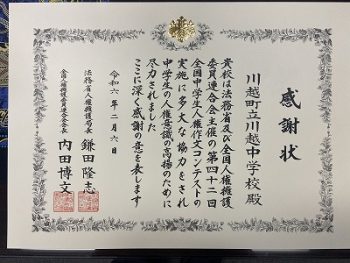 感謝状
川越町立川越中学校殿
貴校は法務省及び全国人権擁護
委員連合会主催の第四十二回
全国中学生人権作文コンテストの
実施に多大な協力をされ
中学生の人権意識の高揚のために
尽力されました
ここに深く感謝の意を表します
令和六年二月六日
法務省人権擁護局長 鎌田隆志
全国人権擁護委員連合会長 内田博文